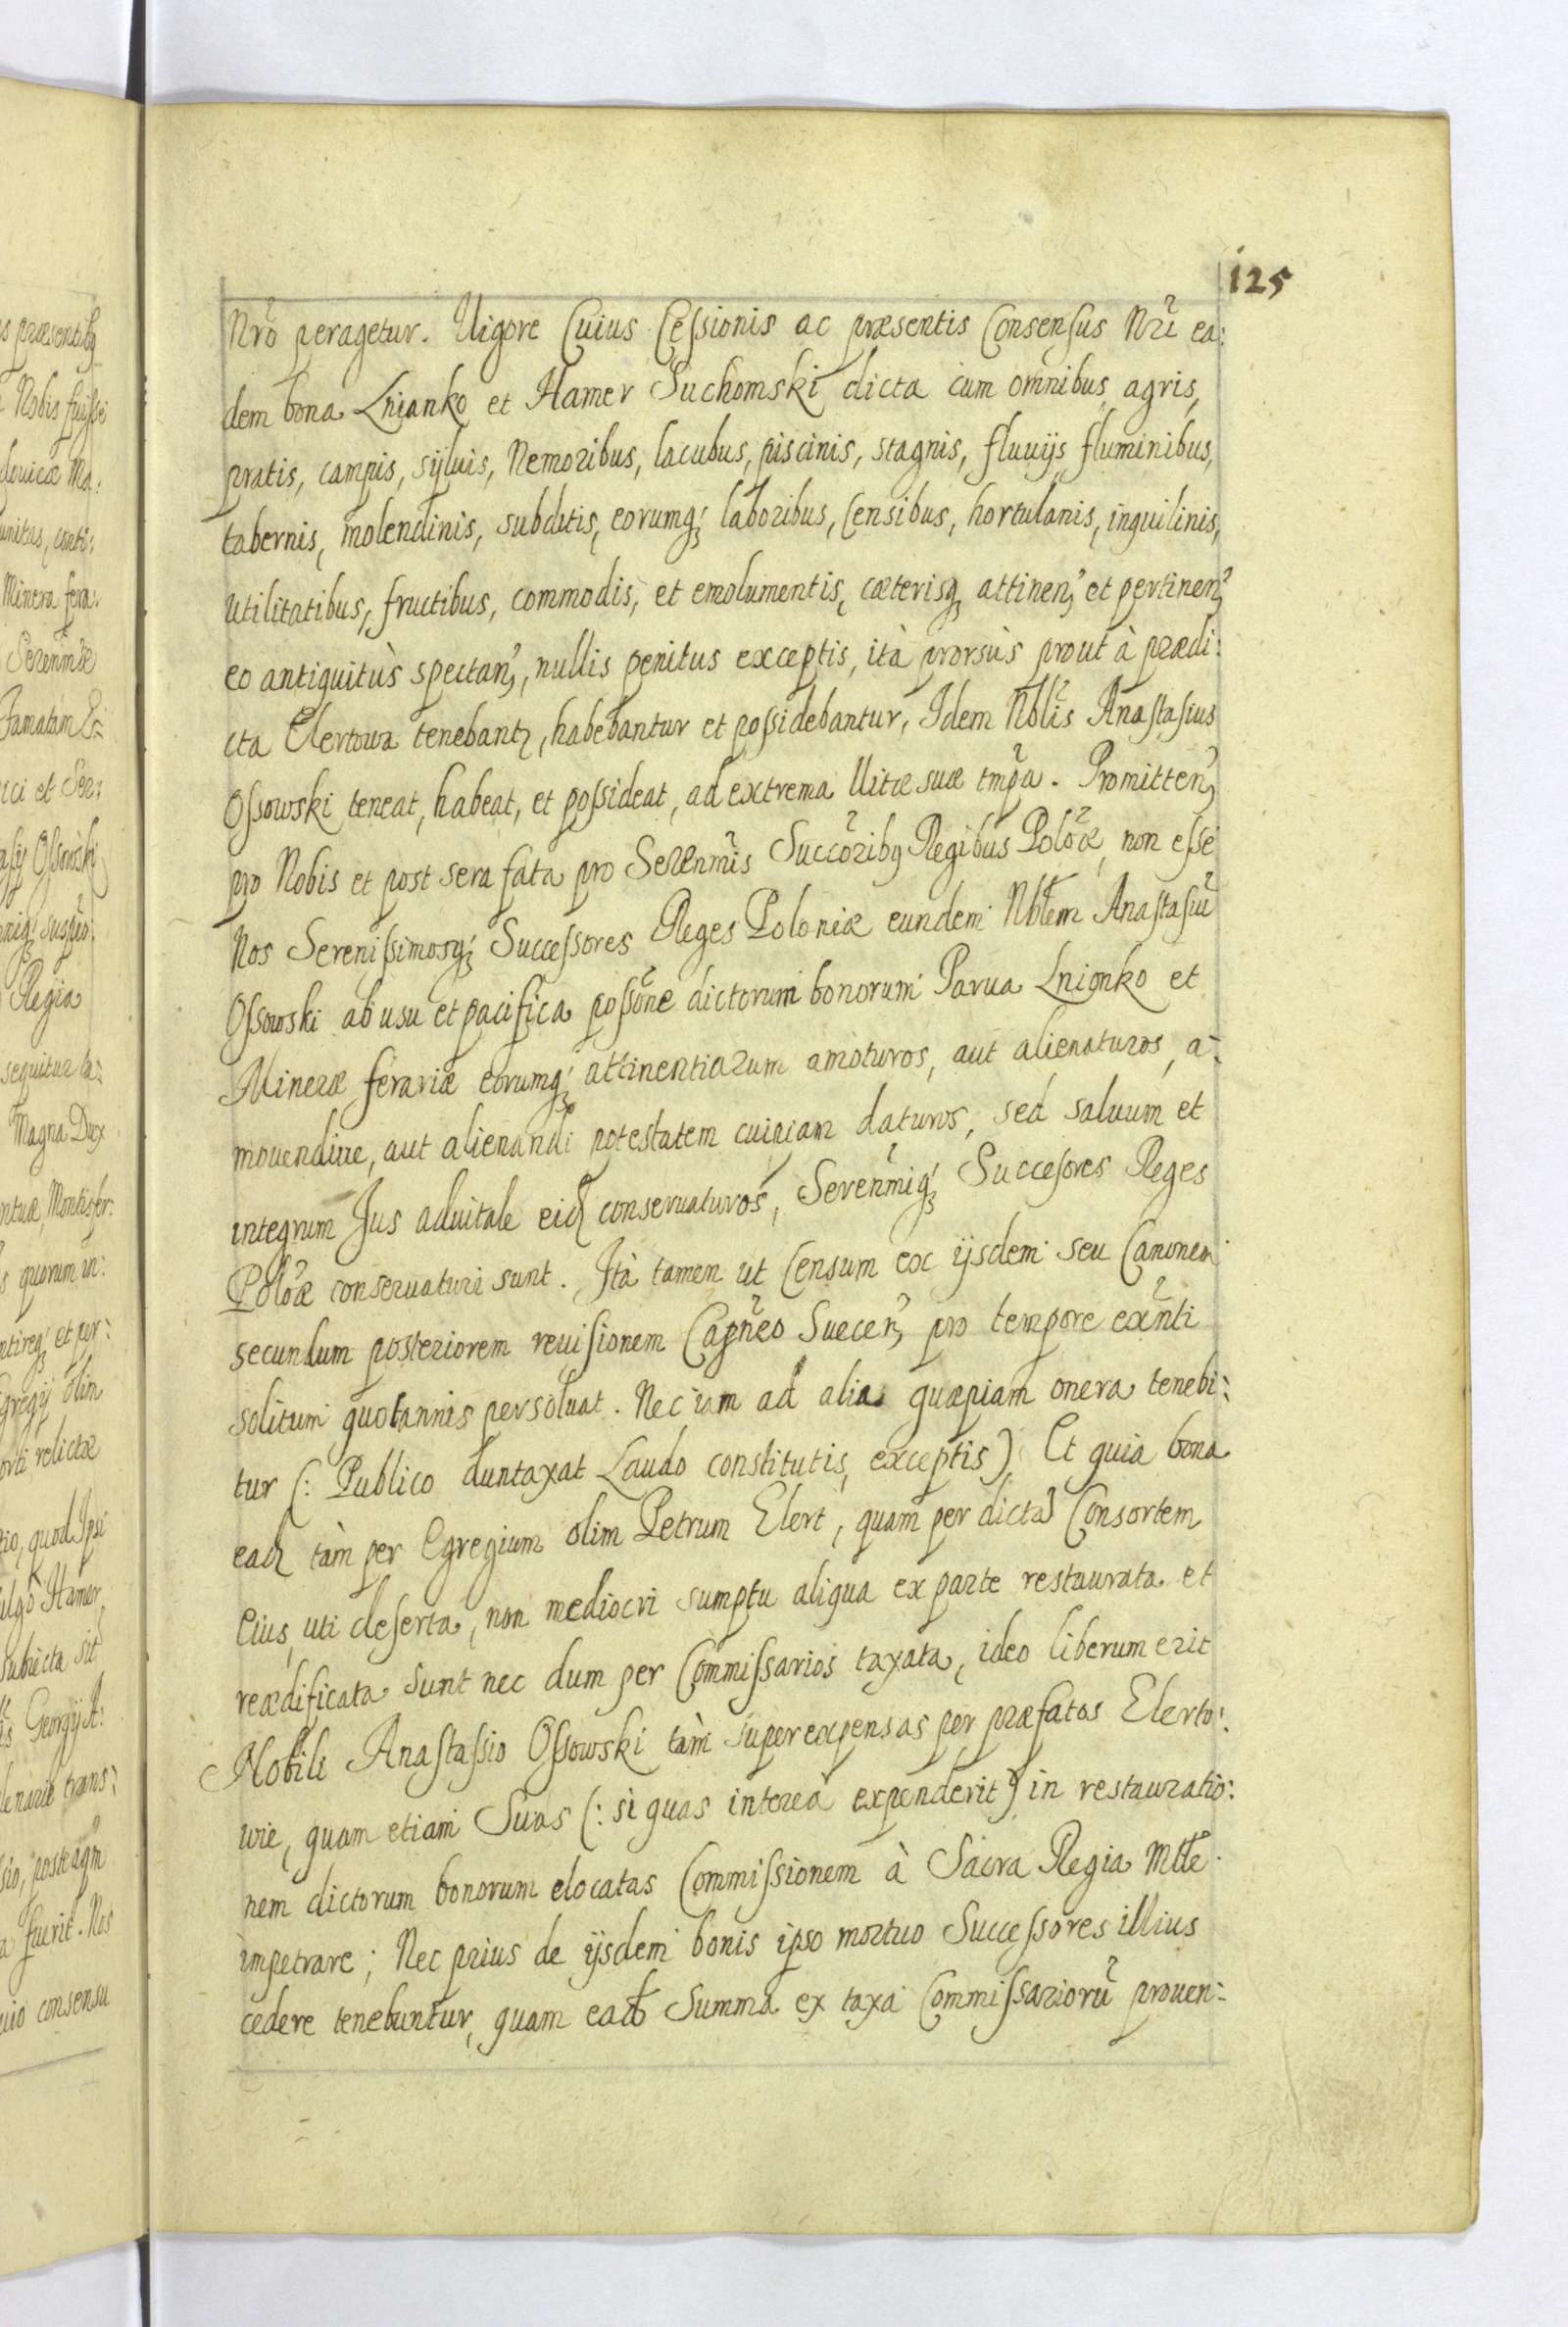 125
Nrõ peragetur. Uigore Cuius Cessionis ac præsentis Consensus Nri ea:
dem bona Lnianko et Hamer Suchomski dicta cum omnibus agris,
pratis, campis, syluis, Nemoribus, lacubus, piscinis, stagnis, fluuijs fluminibus,
tabernis, molendinis, subditis, eorumq; laboribus, Censibus, hortulanis, inquilinis,
utilitatibus, fructibus, commodis, et emolumentis, cæterisq; attinen; et pertinen;
eo antiquitùs spectan;, nullis penitus exceptis, ità prorsùs prout à prædi:
cta Elertowa tenebant, habebantur et possidebantur, Idem Nblis Anastasius
Ossowski teneat, habeat, et possideat, ad extrema Uitæ suæ tmpa. Promitten;
pro Nobis et post sera fata pro Serenmis Succoribq Regibus Poloæ, non esse
Nos Serenissimosq; Successores Reges Poloniæ eundem Nbtem Anastasiũ
Ossowski ab usu et pacifica possone dictorum bonorum Parua Lnionko et
Mineræ ferariæ eorumq; attinentiarum amoturos, aut alienaturos, a:
mouendiue, aut alienandi potestatem cuipiam daturos, sed saluum et
integrum Jus aduitale eid conseruaturos, Serenmiq; Succesores Reges
Poloæ conseruaturi sunt. Ità tamen ut Censum ex ijsdem seu Canonem
secundum posteriorem reuisionem Capneo Suecen; pro tempore exñti
solitum quotannis persoluat. Nec iam ad alia quæpiam onera tenebi:
tur (: Publico duntaxat Laudo constitutis exceptis) Et quia bona
ead tàm per Egregium olim Petrum Elert, quam per dictã Consortem
Eius, uti deserta, non mediocri sumptu aliqua ex parte restaurata et
reædificata sunt nec dum per Commissarios taxata, ideo liberum erit
Nobili Anastassio Ossowski tàm super expensas per præfatos Elerto:
wie, quam etiam Suas (: si quas intereà expenderit) in restauratio:
nem dictorum bonorum elocatas Commissionem à Sacra Regia Mtte
impetrare; Nec prius de ijsdem bonis ipso mortuo Successores illius
cedere tenebuntur, quam ead Summa ex taxa Commissariorũ prouen: